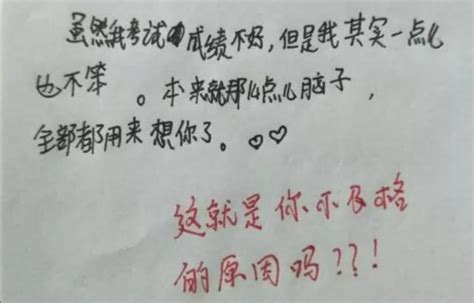 虽然我考试成绩不好,但是我其实一点儿
也不笨。本来就那么点儿脑子,
全部都用来想你了。♡♡
这就是你不及格
的原因吗??!